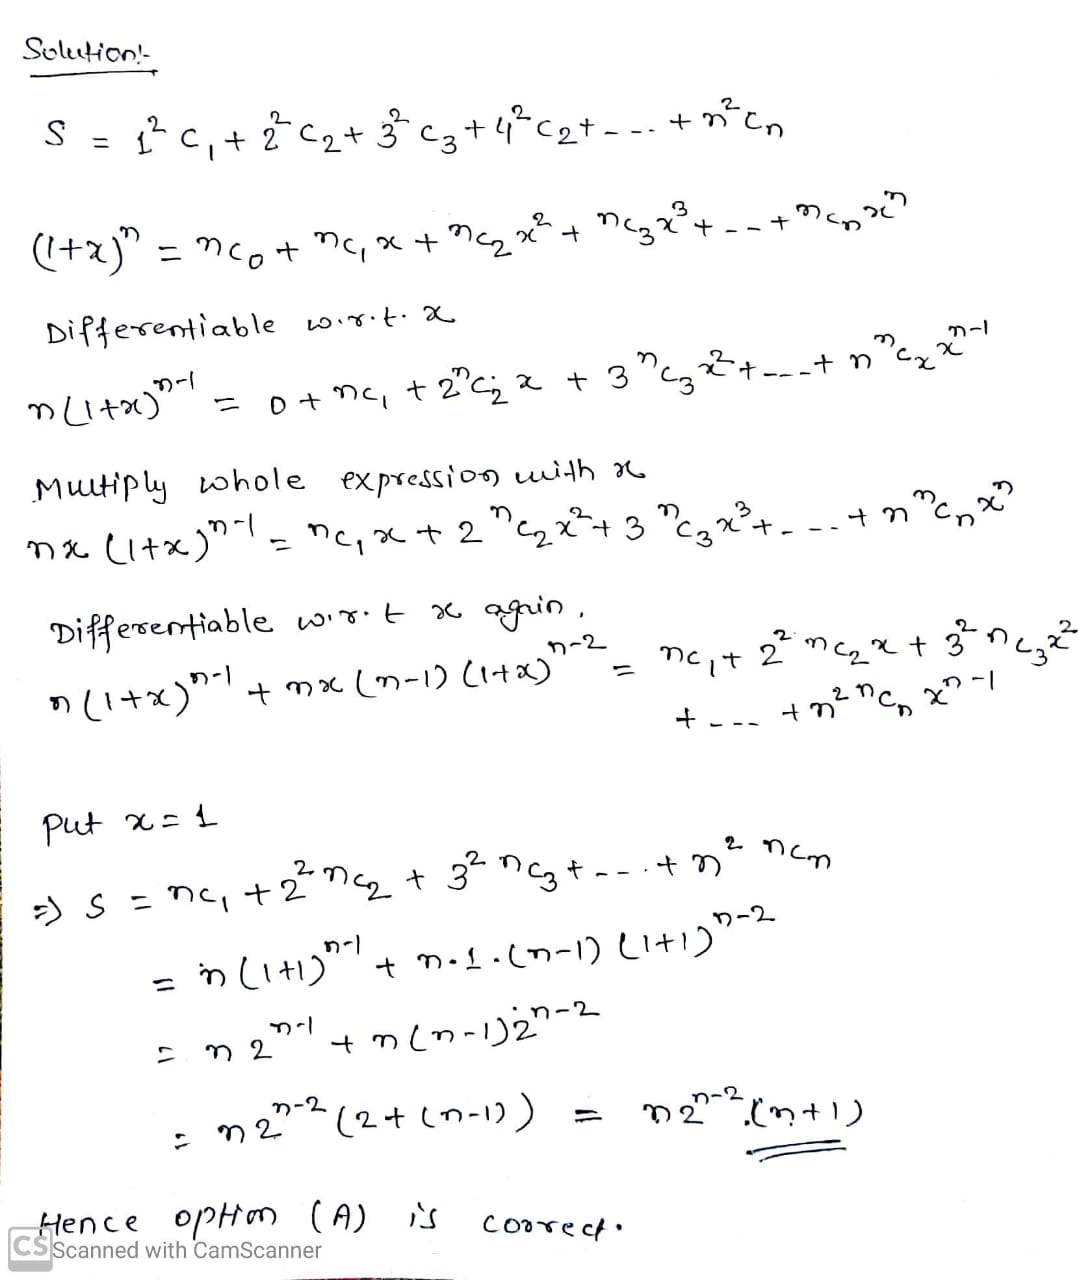 Solution:-
S = 1² C₁ + 2² C₂ + 3² C₃ + 4² C₂ + --.. + n² Cn
(1+x)ⁿ = nC₀ + nC₁ x + nC₂ x² + nC₃ x³ + --.. + nCn xⁿ
Differentiable w.r.t. x
n(1+x)ⁿ⁻¹ = 0 + nC₁ + 2 ⁿC₂ x + 3 ⁿC₃ x² + ---.. + n ⁿCₓ xⁿ⁻¹
Multiply whole expression with x
nx (1+x)ⁿ⁻¹ = nC₁ x + 2 ⁿC₂ x² + 3 ⁿC₃ x³ + - -.. + n ⁿCn xⁿ
Differentiable w.r.t x again,
n(1+x)ⁿ⁻¹ + nx (n-1) (1+x)ⁿ⁻² = nC₁ + 2² nC₂ x + 3² nC₃ x²
+ --.. + n² nCn xⁿ⁻¹
Put x = 1
⇒ S = nC₁ + 2² nC₂ + 3² nC₃ + --.. + n² nCn
= n(1+1)ⁿ⁻¹ + n.1.(n-1) (1+1)ⁿ⁻²
= n 2ⁿ⁻¹ + n(n-1)2ⁿ⁻²
= n 2ⁿ⁻² (2+(n-1)) = n 2ⁿ⁻².(n+1)
Hence option (A) is correct.
CS Scanned with CamScanner